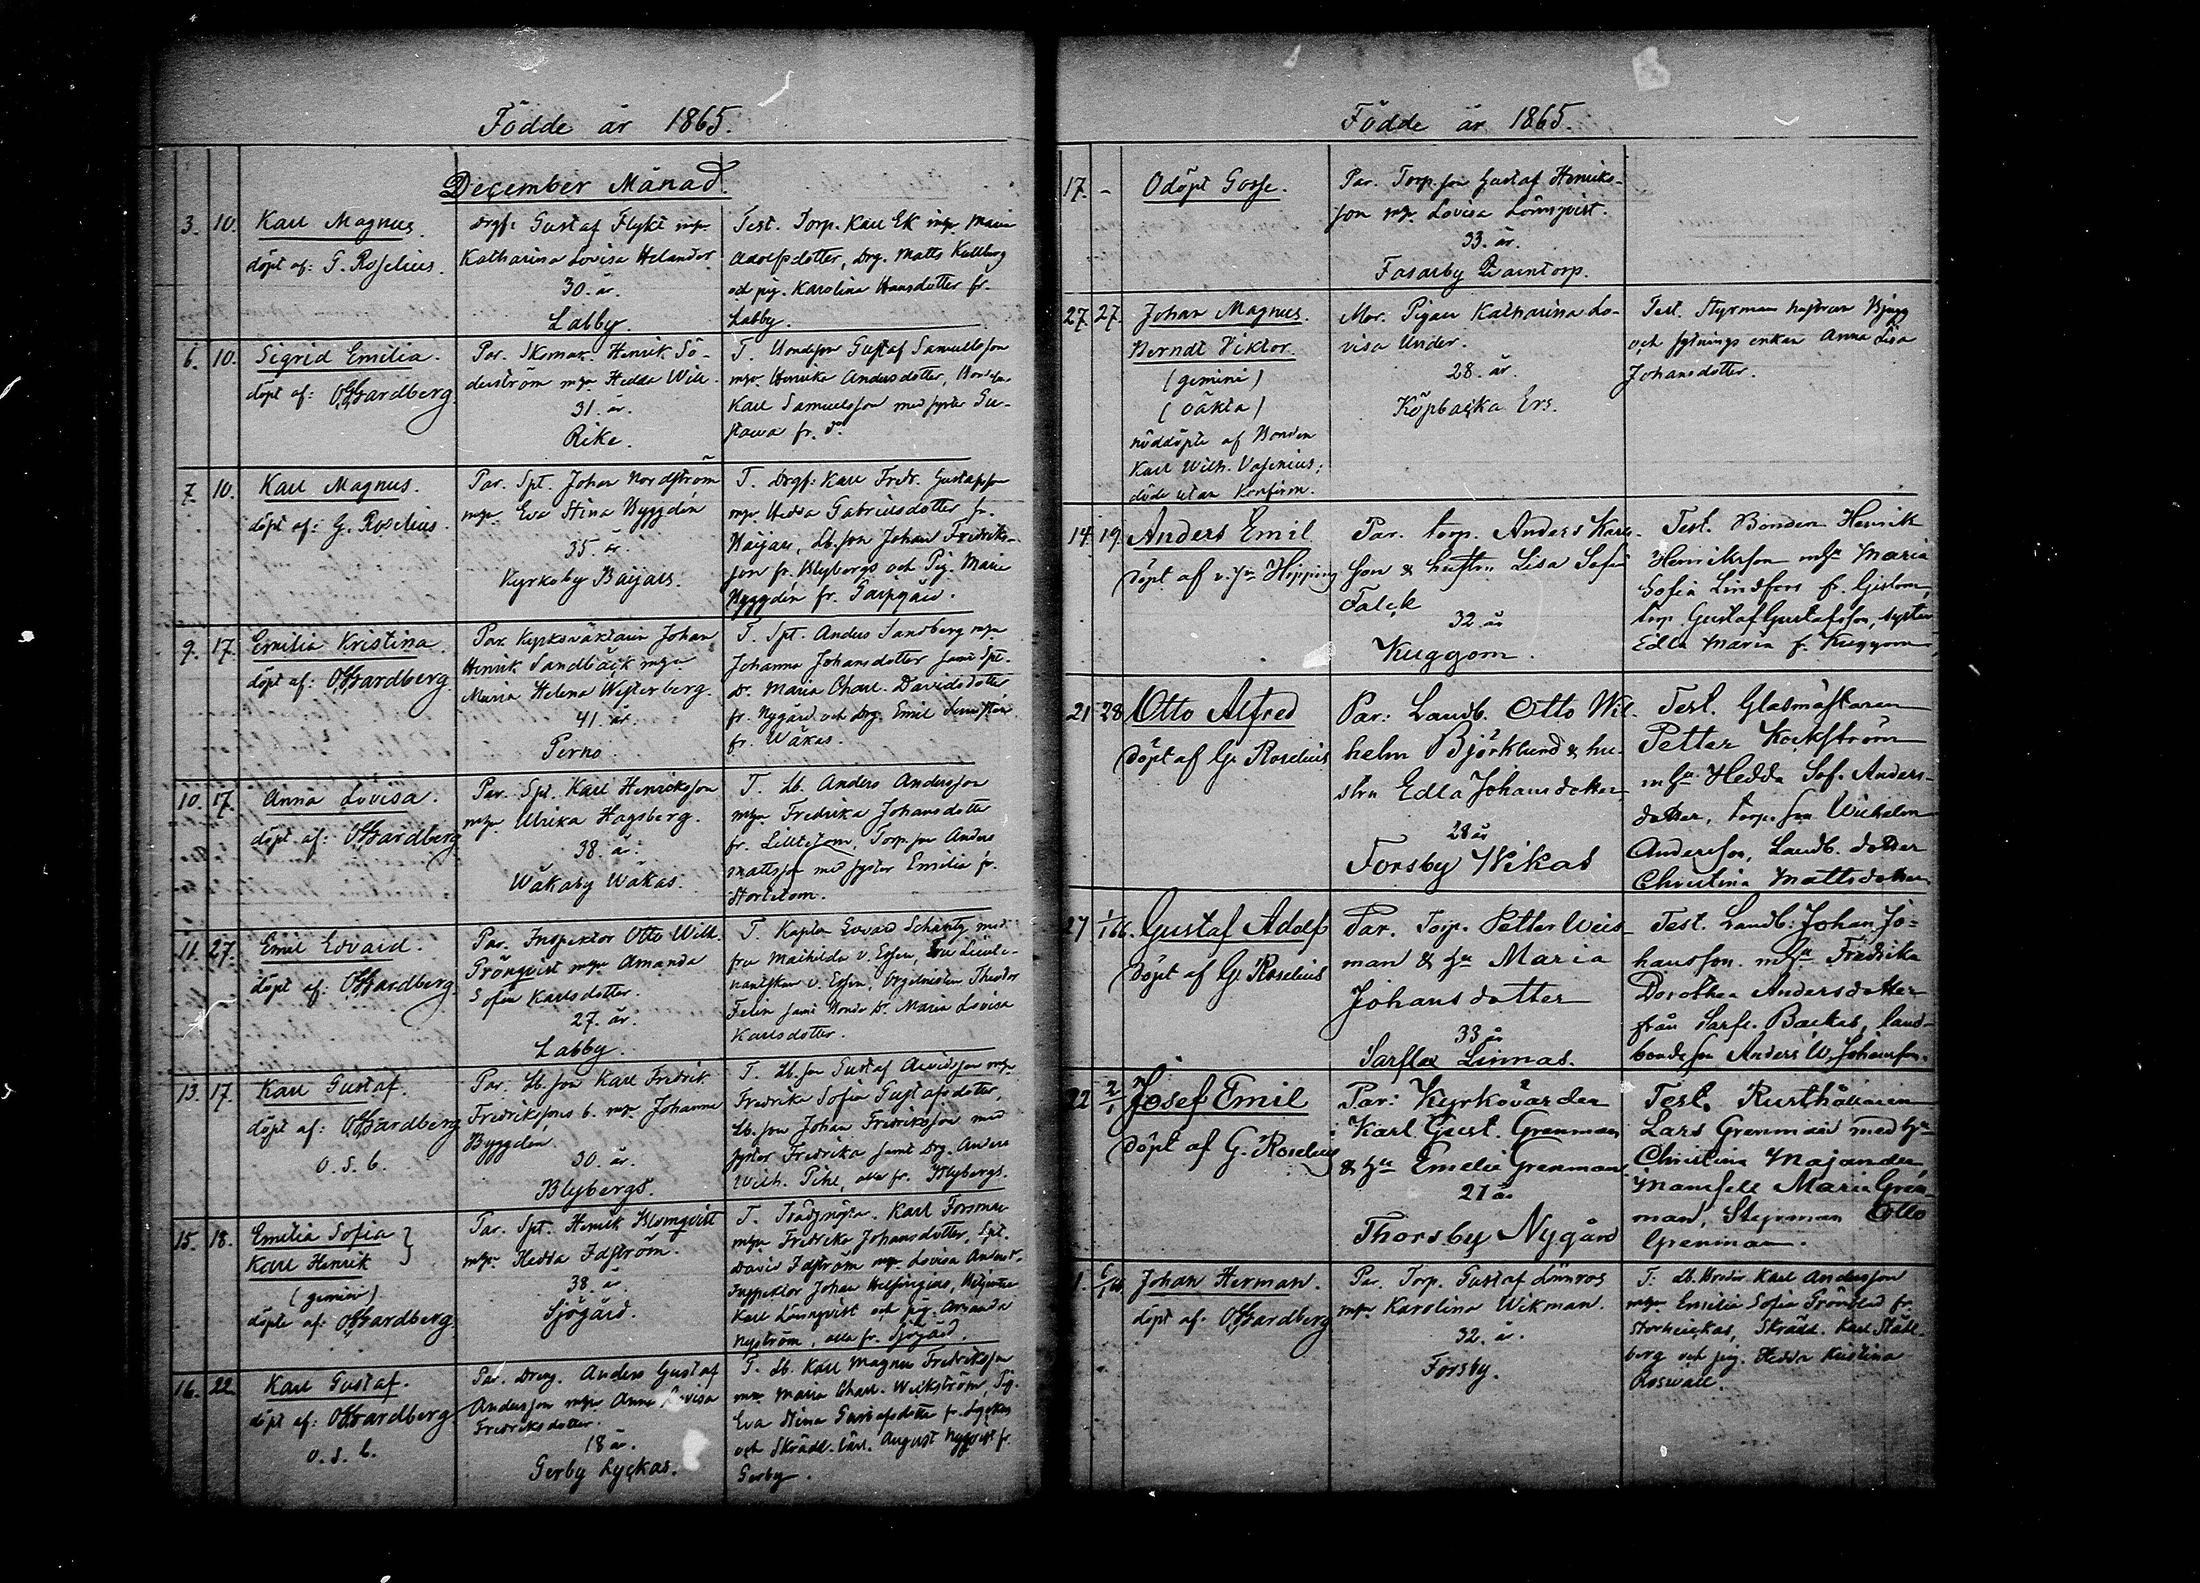 Födde år 1865.
December Månad.
3. 10. Karl Magnus.
döpt af: G. Roselius.
Drgf: Gustaf Flykt mhu
Katharina Lovisa Helander
30. år.
Labby.
Test. Torp. Karl Ek mhu Maria
Adolfsdotter, Drg. Matts Kullberg
och pig. Karolina Hansdotter fr.
Labby.
6. 10. Sigrid Emilia.
döpt af: Hardberg.
Par. Skomak. Henrik Sö-
derström mhu Hedda Wilh.
31. år.
Rike.
T. Bondeson Gustaf Samuelsson
mhu Henrika Andersdotter,
Karl Samuelsson med syster Gu-
stava fr. d:o
7. 10. Karl Magnus.
döpt af: G. Roselius.
Par. Spt. Johan Nordström
mhu Eva Stina Byggdén
35. år.
Kyrkoby Baijars.
T. Drgf: Karl Fredr. Gustafsson
mhu Hedda Gabrielsdotter fr.
Baijars, Lb.son Johan Fredriks-
son fr. Blybergs och Pig. Maria
Byggdén fr. Garpgård.
9. 17. Emilia Kristina.
döpt af: Hardberg.
Par. Kyrkoväktaren Johan
Henrik Sandbäck mhu
Maria Helena Westerberg.
41. år.
Perno.
T. Spt. Anders Sandberg mhu
Johanna Johansdotter samt Spt.
D:r Maria Charl. Davidsdotter
fr. Nygård och drg. Emil
fr. Wäkas.
10. 17. Anna Lovisa.
döpt af: Hardberg
Par. Spt. Karl Henricksson
mhu Ulrika Hagsberg.
38. år.
Wåkaby Wäkas.
T. Lb. Anders Andersson
mhu Fredrika Johansdotter
fr. Lilltjom, Torp.son Anders
Mattsson med syster Emilia fr.
11. 27. Emil Edvard.
döpt af: Hardberg.
Par. Inspektor Otto Wilh.
Grönqvist mhu Amanda
Sofia Karlsdotter.
27. år.
Labby.
T. Kapten Edvard Schantz med
fru Mathilda v. Essen, Fru Lieute-
nantskan v. Essen, Orgelnisten Theodor
Felin samt Bonde D:r Maria Lovisa
Karlsdotter.
13. 17. Karl Gustaf.
döpt af: Hardberg
o. s. b.
Par. Lb.son Karl Fredrik
Fredrikssons b. mhu Johanna
Byggdén.
30. år.
Blybergs.
T. Lb.son Gustaf Arvidsson mhu
Fredrika Sofia Gustafsdotter,
Lb.son Johan Fredriksson med
syster Fredrika samt Drg. Anders
Wilh. Pihl, alla fr. Blybergs.
15. 18. Emilia Sofia
Karl Henrik
(gemini)
döpte af: Hardberg.
Par. Spt. Henrik Blomqvist
mhu Hedda Idström.
38. år.
Sjögård.
T. Trädgmäst. Karl Forsman
mhu Fredrika Johansdotter, Spt.
David Idström mhu Lovisa
Inspektor Johan Helsingius,
Karl Lönnqvist och pig. Amanda
Nyström, alla fr. Sjögård.
16. 22. Karl Gustaf.
döpt af: Hardberg.
o. s. b.
Par. Dreng. Anders Gustaf
Andersson mhu Anna Lovisa
Fredriksdotter.
18 år.
Gerby Lyckas.
T. Lb. Karl Magnus Fredriksson
mhu Maria Charl. Weckström, Pig.
Eva Stina Gustafsdotter fr. Lyckas
och Skrädd.lärl. August Nyqvist fr.
Gerby.
Födde år 1865.
17. - Odöpt Gosse.
Par. Torp.son Gustaf Henriks-
son mhu Lovisa Lönnqvist.
33. år.
Fasarby Qvarntorp.
27. 27. Johan Magnus.
Berndt Viktor.
(gemini)
(oäkta)
nöddöpte af Bonden
Karl Wilh. Vasenius;
döde utan Konfirm.
Mor. Pigan Katharina Lo-
visa Under.
28. år.
Köpbacka Ers.
Test. Styrmans hustrun Bjugg
och sytnings enkan Anna Lisa
Johansdotter.
14. 19. Anders Emil
döpt af v.p:n Hipping
Par. torp. Anders Karls-
son & hustru Lisa Sofia
Falck
32 år
Kuggom.
Test. Bonden Henrik
Henriksson m.h:u Maria
Sofia Lindfors fr. Gislom,
torp. Gustaf Gustafsson, syster
Edla Maria fr. Kuggom
21 28 Otto Alfred
döpt af G. Roselius
Par: Landb. Otto Wil-
helm Björklund & hu-
stru Edla Johansdotter
28 år
Forsby Wikas
Test. Glasmästaren
Petter Kockström
m.h:u Hedda Sof. Anders-
dotter, torp. son Wilhelm
Andersson, Landb. dotter
Christina Mattsdotter
27 1/1 66. Gustaf Adolf
döpt af G. Roselius
Par. Torp. Petter Weis-
man & h:u Maria
Johansdotter
33 år
Sarfla Linnas.
Test. Landb: Johan Jo-
hansson. m.h:u Fredrika
Dorothea Andersdotter
från Sarfl. Backas, land-
bonde son Anders W. Johansson.
22 2/1 Josef Emil
döpt af G. Roselius
Par: Kyrkovärden
Karl Gust. Grenman
& h:u Emelie Grenman
21 år
Thorsby Nygård
Test. Rusthållaren
Lars Grenman med h:u
Christina Majander,
Mamsell Maria Gren-
man, Styrman Otto
Grenman.
1. 6/1 66. Johan Herman.
döpt af: Hardberg
Par. Torp. Gustaf Lönnros
mhu Karolina Wikman.
32. år.
Forsby.
T. Lb. Broder Karl Andersson
mhu Emilia Sofia Grönblad fr.
Skrädd. Karl Ståhl-
berg och pig. Hedda Kristina
Roswall.